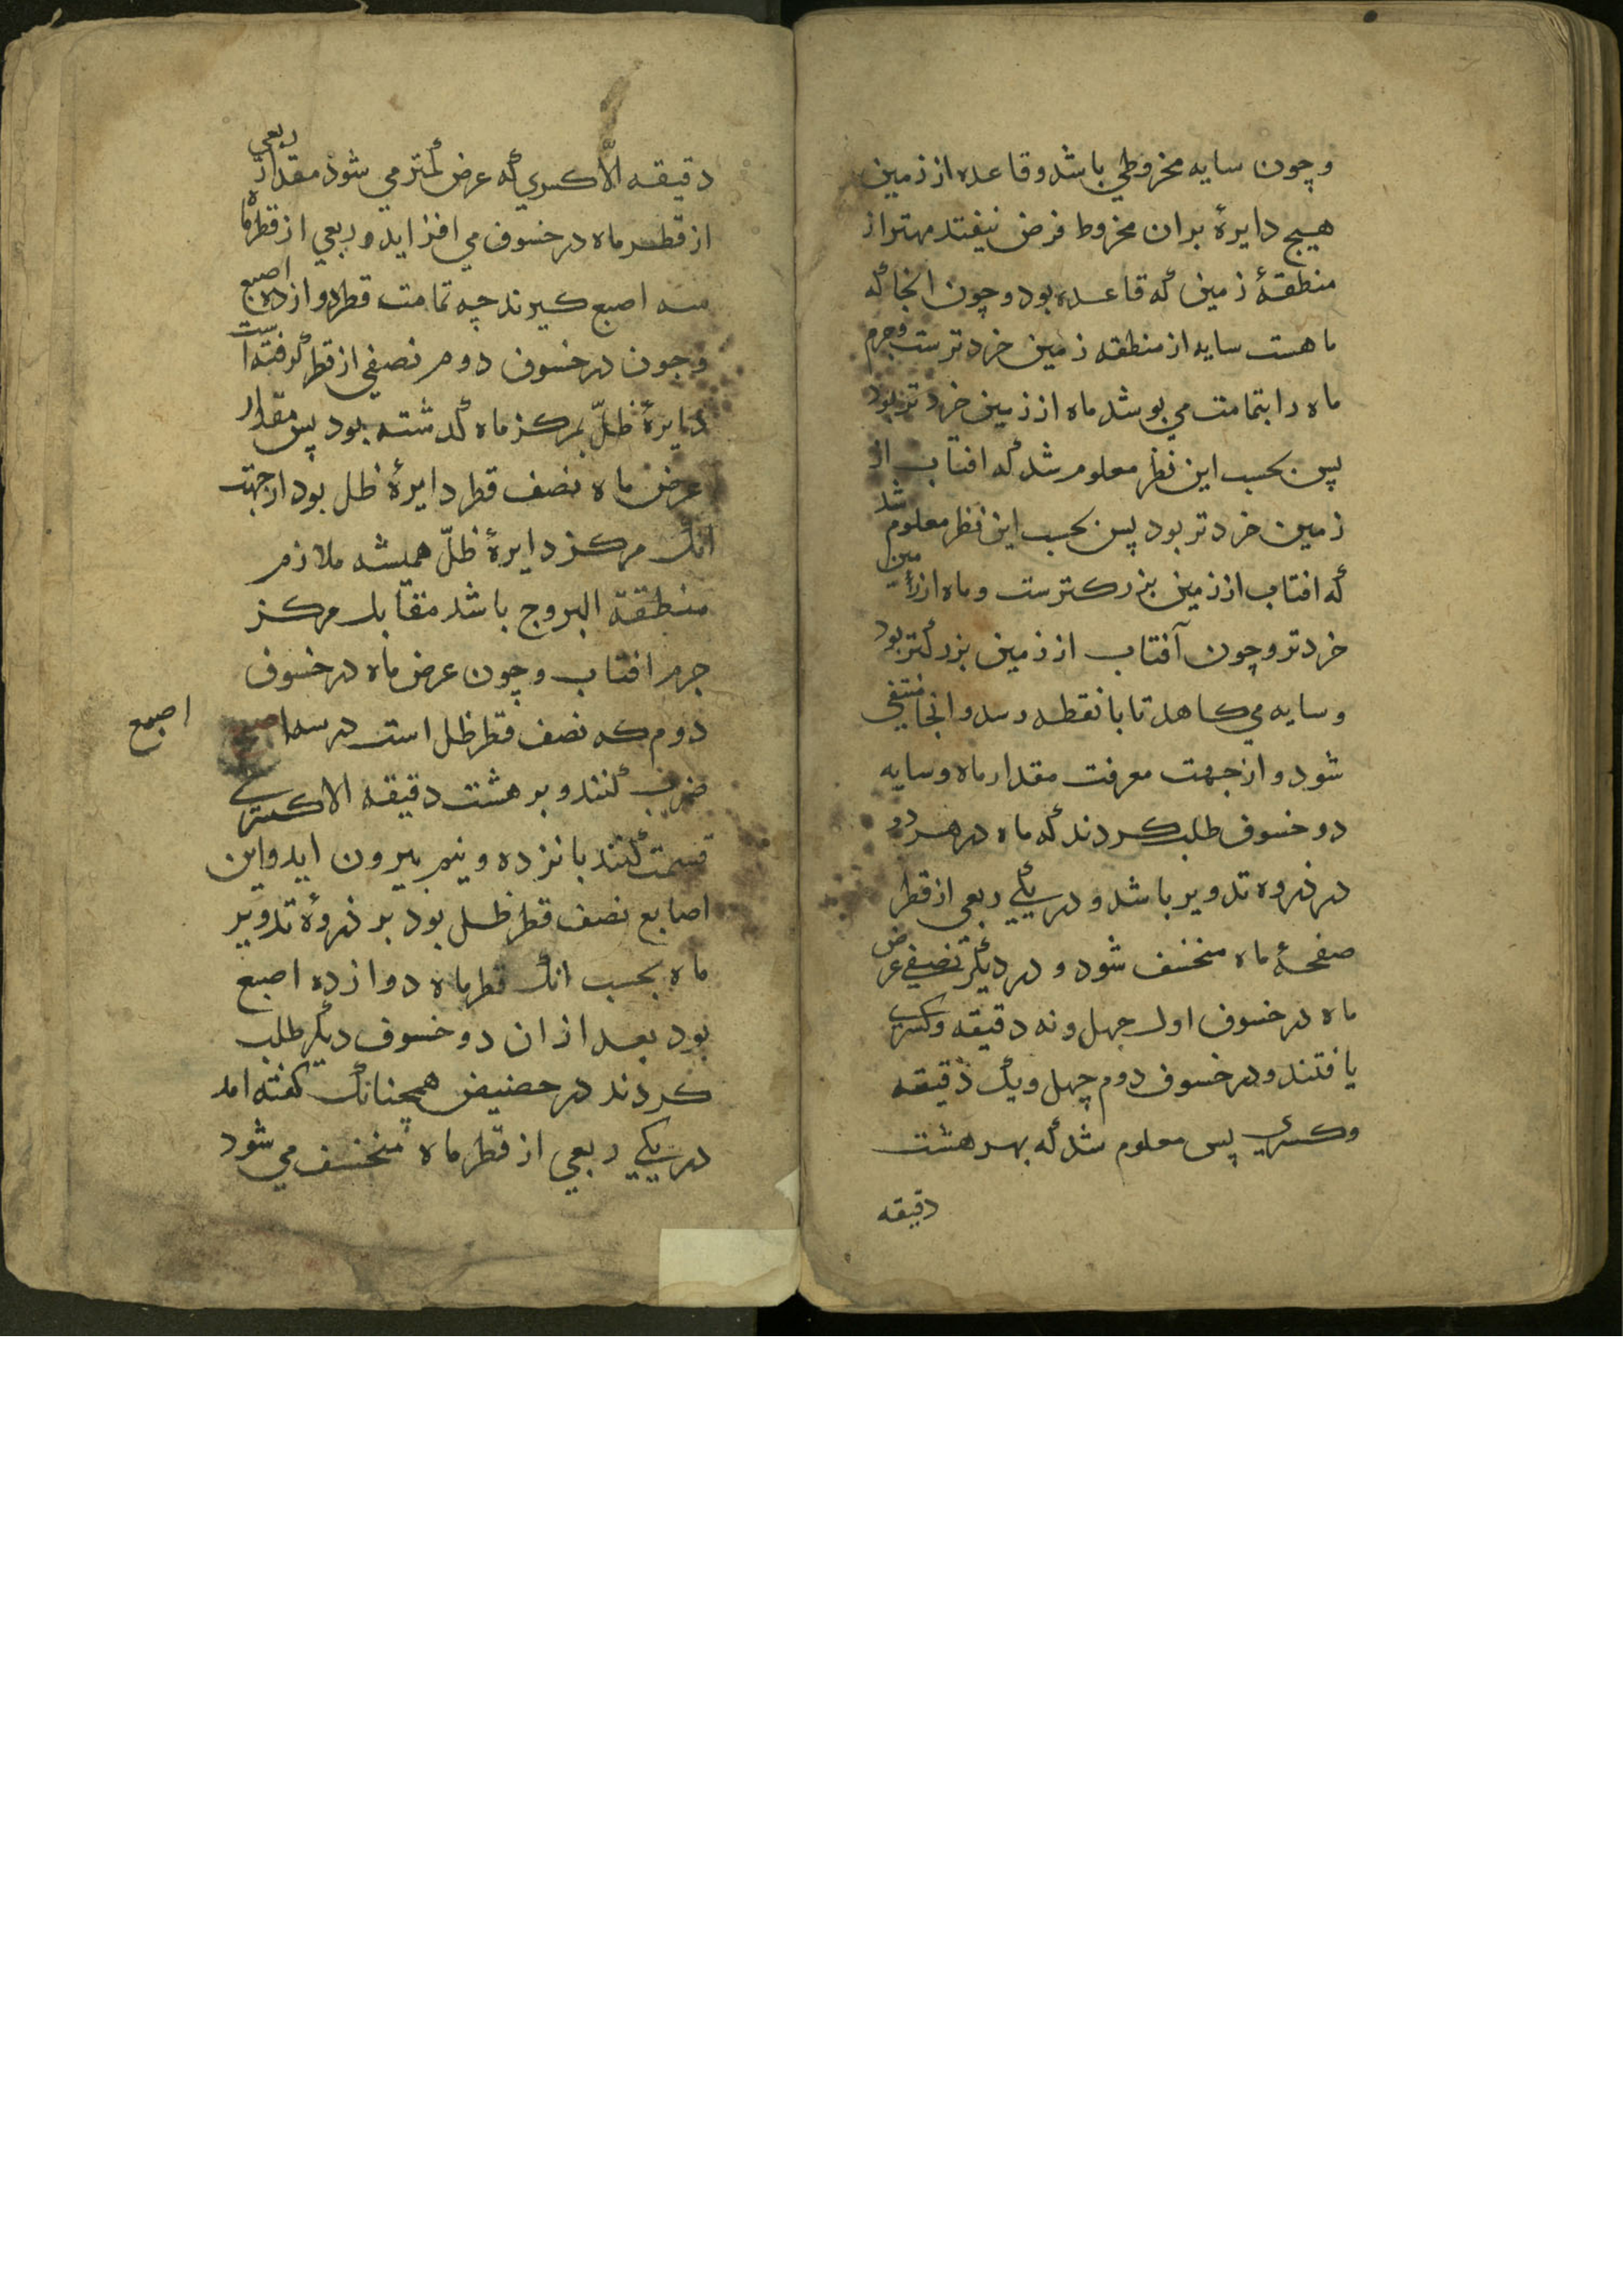 و چون سایه مخروطي باشد و قاعده از زمین
هیچ دایرهٔ بران مخروط فرض نیفتد مهتر از
منطقهٔ زمین که قاعده بود و چون انجا که
ماهست سایه از منطقه زمین خردترست و جرم
ماه را بتمامت می بوشد ماه از زمین خردتر بود
پس بحسب این نظر معلوم شد که افتاب از
زمین خردتر بود پس بحسب این نظر معلوم شد
که افتاب از زمین بزرکترست و ماه از زمین
خردتر و چون آفتاب از زمین بزرکتر بود
و سایه می کاهد تا بانقطه رسد و انجا منتفي
شود و از جهت معرفت مقدار ماه و سایه
دو خسوف طلب کردند که ماه در هر دو
در ذروه تدویر باشد و در یکي ربعي از قطر
صفحهٔ ماه منخسف شود و در دیکر نصفي عرض
ماه در خسوف اول جهل و نه دقیقه و کسري
یافتند و در خسوف دوم چهل و یک دقیقه
و کسري پس معلوم شد که بهر هشت
دقیقه
دقیقه الّا کسري که عرض کمتر می شوذ مقدار ربعي
از قطر ماه در خسوف می افزاید و ربعي از قطر ماه
سه اصبع کیرند چه تمامت قطر دوازده اصبع
و جون در خسوف دوم نصفي از قطر کرفته است
دایرهٔ ظلّ بمرکز ماه کدشته بود پس مقدار
عرض ماه نصف قطر دایرهٔ ظل بود از جهت
انک مرکز دایرهٔ ظلّ همیشه ملازم
منطقة البروج باشد مقابل مرکز
جرم افتاب و چون عرض ماه در خسوف
دوم که نصف قطر ظل است در سه اصبع
اصبع
ضرب کنند و بر هشت دقیقه الا کسري
قسمت کنند بانزده و نیم بیرون اید و این
اصابع نصف قطر ظل بود بر ذروهٔ تدویر
ماه بحسب انک قطر ماه دوازده اصبع
بود بعد از ان دو خسوف دیکر طلب
کردند در حضیض همچنانک کفته امد
در یکي ربعي از قطر ماه منخسف می شود